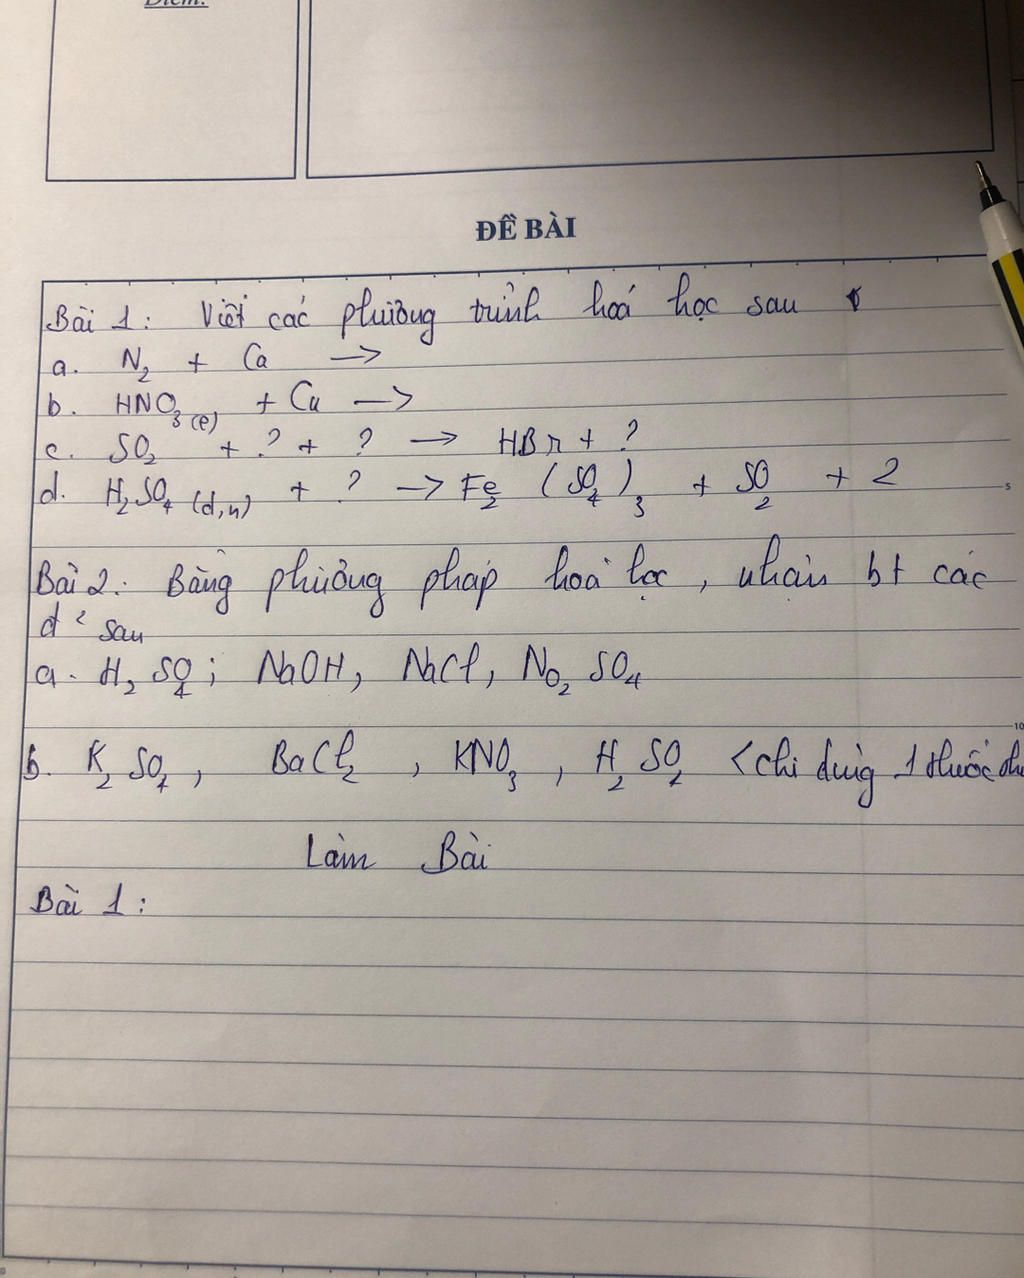 Điểm:
ĐỀ BÀI
Bài 1: Viết các phương trình hoá học sau
a. N₂ + Ca →
b. HNO₃ (l) + Cu →
c. SO₂ + ? + ? → HBr + ?
d. H₂SO₄ (đ,n) + ? → Fe₂(SO₄)₃ + SO₂ + 2
5
Bài 2: Bằng phương pháp hoá học, nhận bt các
d² sau
a. H₂SO₄; NaOH, NaCl, No₂SO₄
10
b. K₂SO₄, BaCl₂, KNO₃, H₂SO₄ <chỉ dùng 1 thuốc thử
Làm Bài
Bài 1: